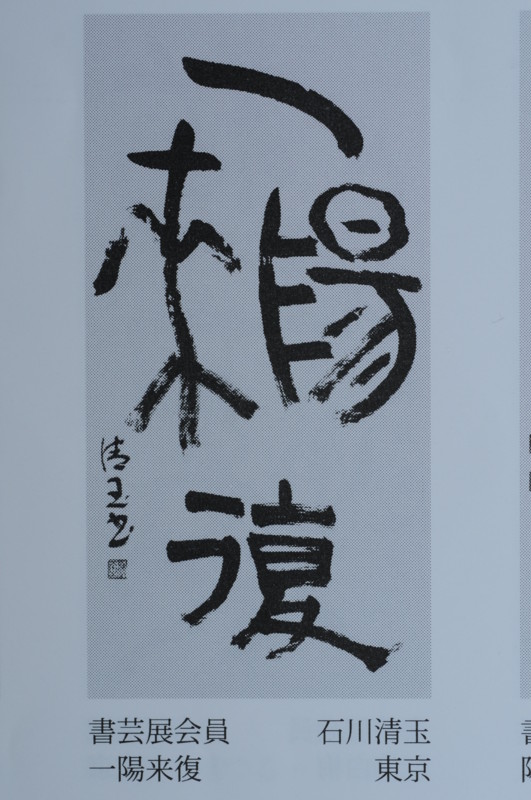 一陽
来復
清玉書
書芸展会員 石川清玉
一陽来復 東京